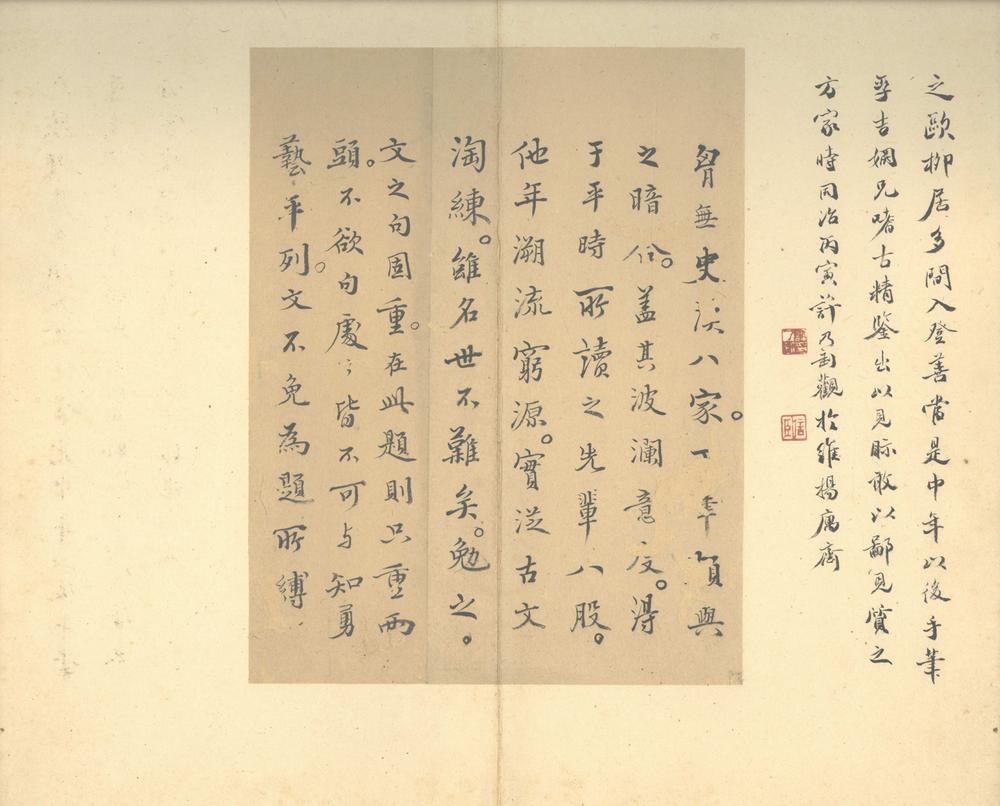 之歐柳居多間入登善當是中年以後手筆
季吉姻兄嗜古精鑒出以見眎敢以鄙見質之
方家時同治丙寅許乃釗觀於維揚寓齋
胷無史漢八家下筆質與
之暗合。蓋其波瀾意度。得
于平時所讀之先輩八股。
他年溯流窮源。實從古文
淘練。雖名世不難矣。勉之。
文之句固重。在此題則只重兩
頭。不欲句處〻皆不可与知勇
藝平列。文不免為題所縛